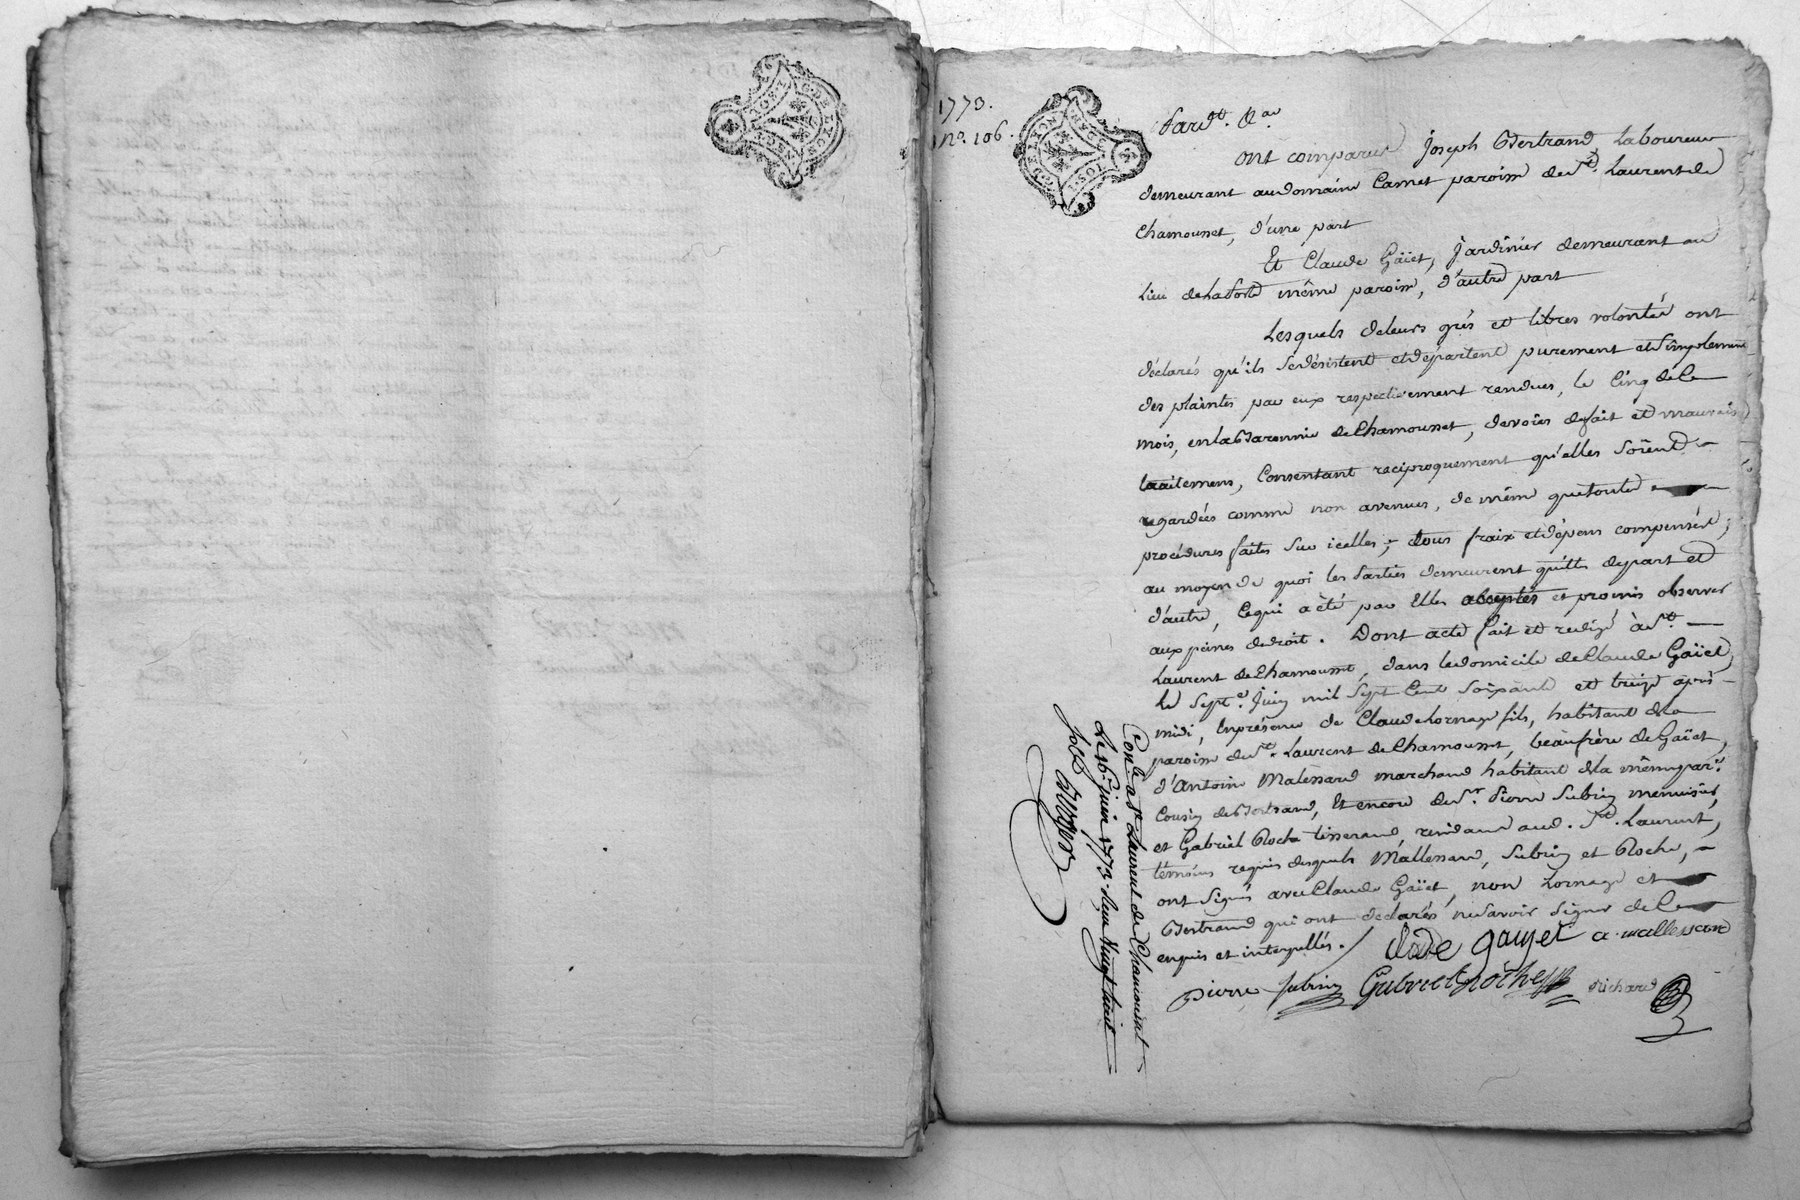 1773.
no. 106.
Pard.t &a.
ont comparus Joseph Bertrand, Laboureur
demeurant au domaine Camet paroisse de St. Laurent de
Chamousset, d'une part
Et Claude Gaïet, Jardinier demeurant au
Lieu de la même paroisse, d'autre part
Lesquels de leurs grés et libres volontés ont
déclarés qu'ils se désistent et départent purement et simplement
des plaintes par eux respectivement rendues, le cinq de ce
mois, en la Baronnie de Chamousset, de voies de fait et mauvais
traitemens, Consentant reciproquement qu'elles soient
regardées comme non avenues, de même que toutes
procédures faites sur icelles; tous fraix et dépens compensés,
au moyen de quoi les parties demeurent quittes de part et
d'autre, ce qui a été par Elles accepté et promis observer
aux peines de droit. Dont acte fait et redigé à St.
Laurent de Chamousset, dans le domicile de Claude Gaïet,
le sept juin mil sept cent soixante et treize après
midi, En présence de Claude Lornage fils, habitant de la
paroisse de St. Laurent de Chamousset, beaufrère de Gaïet,
d'Antoine Malessard marchand habitant de la même par.e
Cousin de Bertrand, Et encore de Sr. Pierre Subrin menuisier,
et Gabriel Roche tisserand, résidans aud. St. Laurent,
témoins requis desquels Mallessard, Subrin et Roche,
ont signés avec Claude Gaïet, non Lornage et
Bertrand qui ont declarés ne savoir signer de ce
enquis et interpellés.
clode gayet a. mallessard
pierre subrin Gabriel roche Richard
Con.lé a St Laurent de Chamousset
Le 16 juin 1773. Reçu Vingt huit
sols